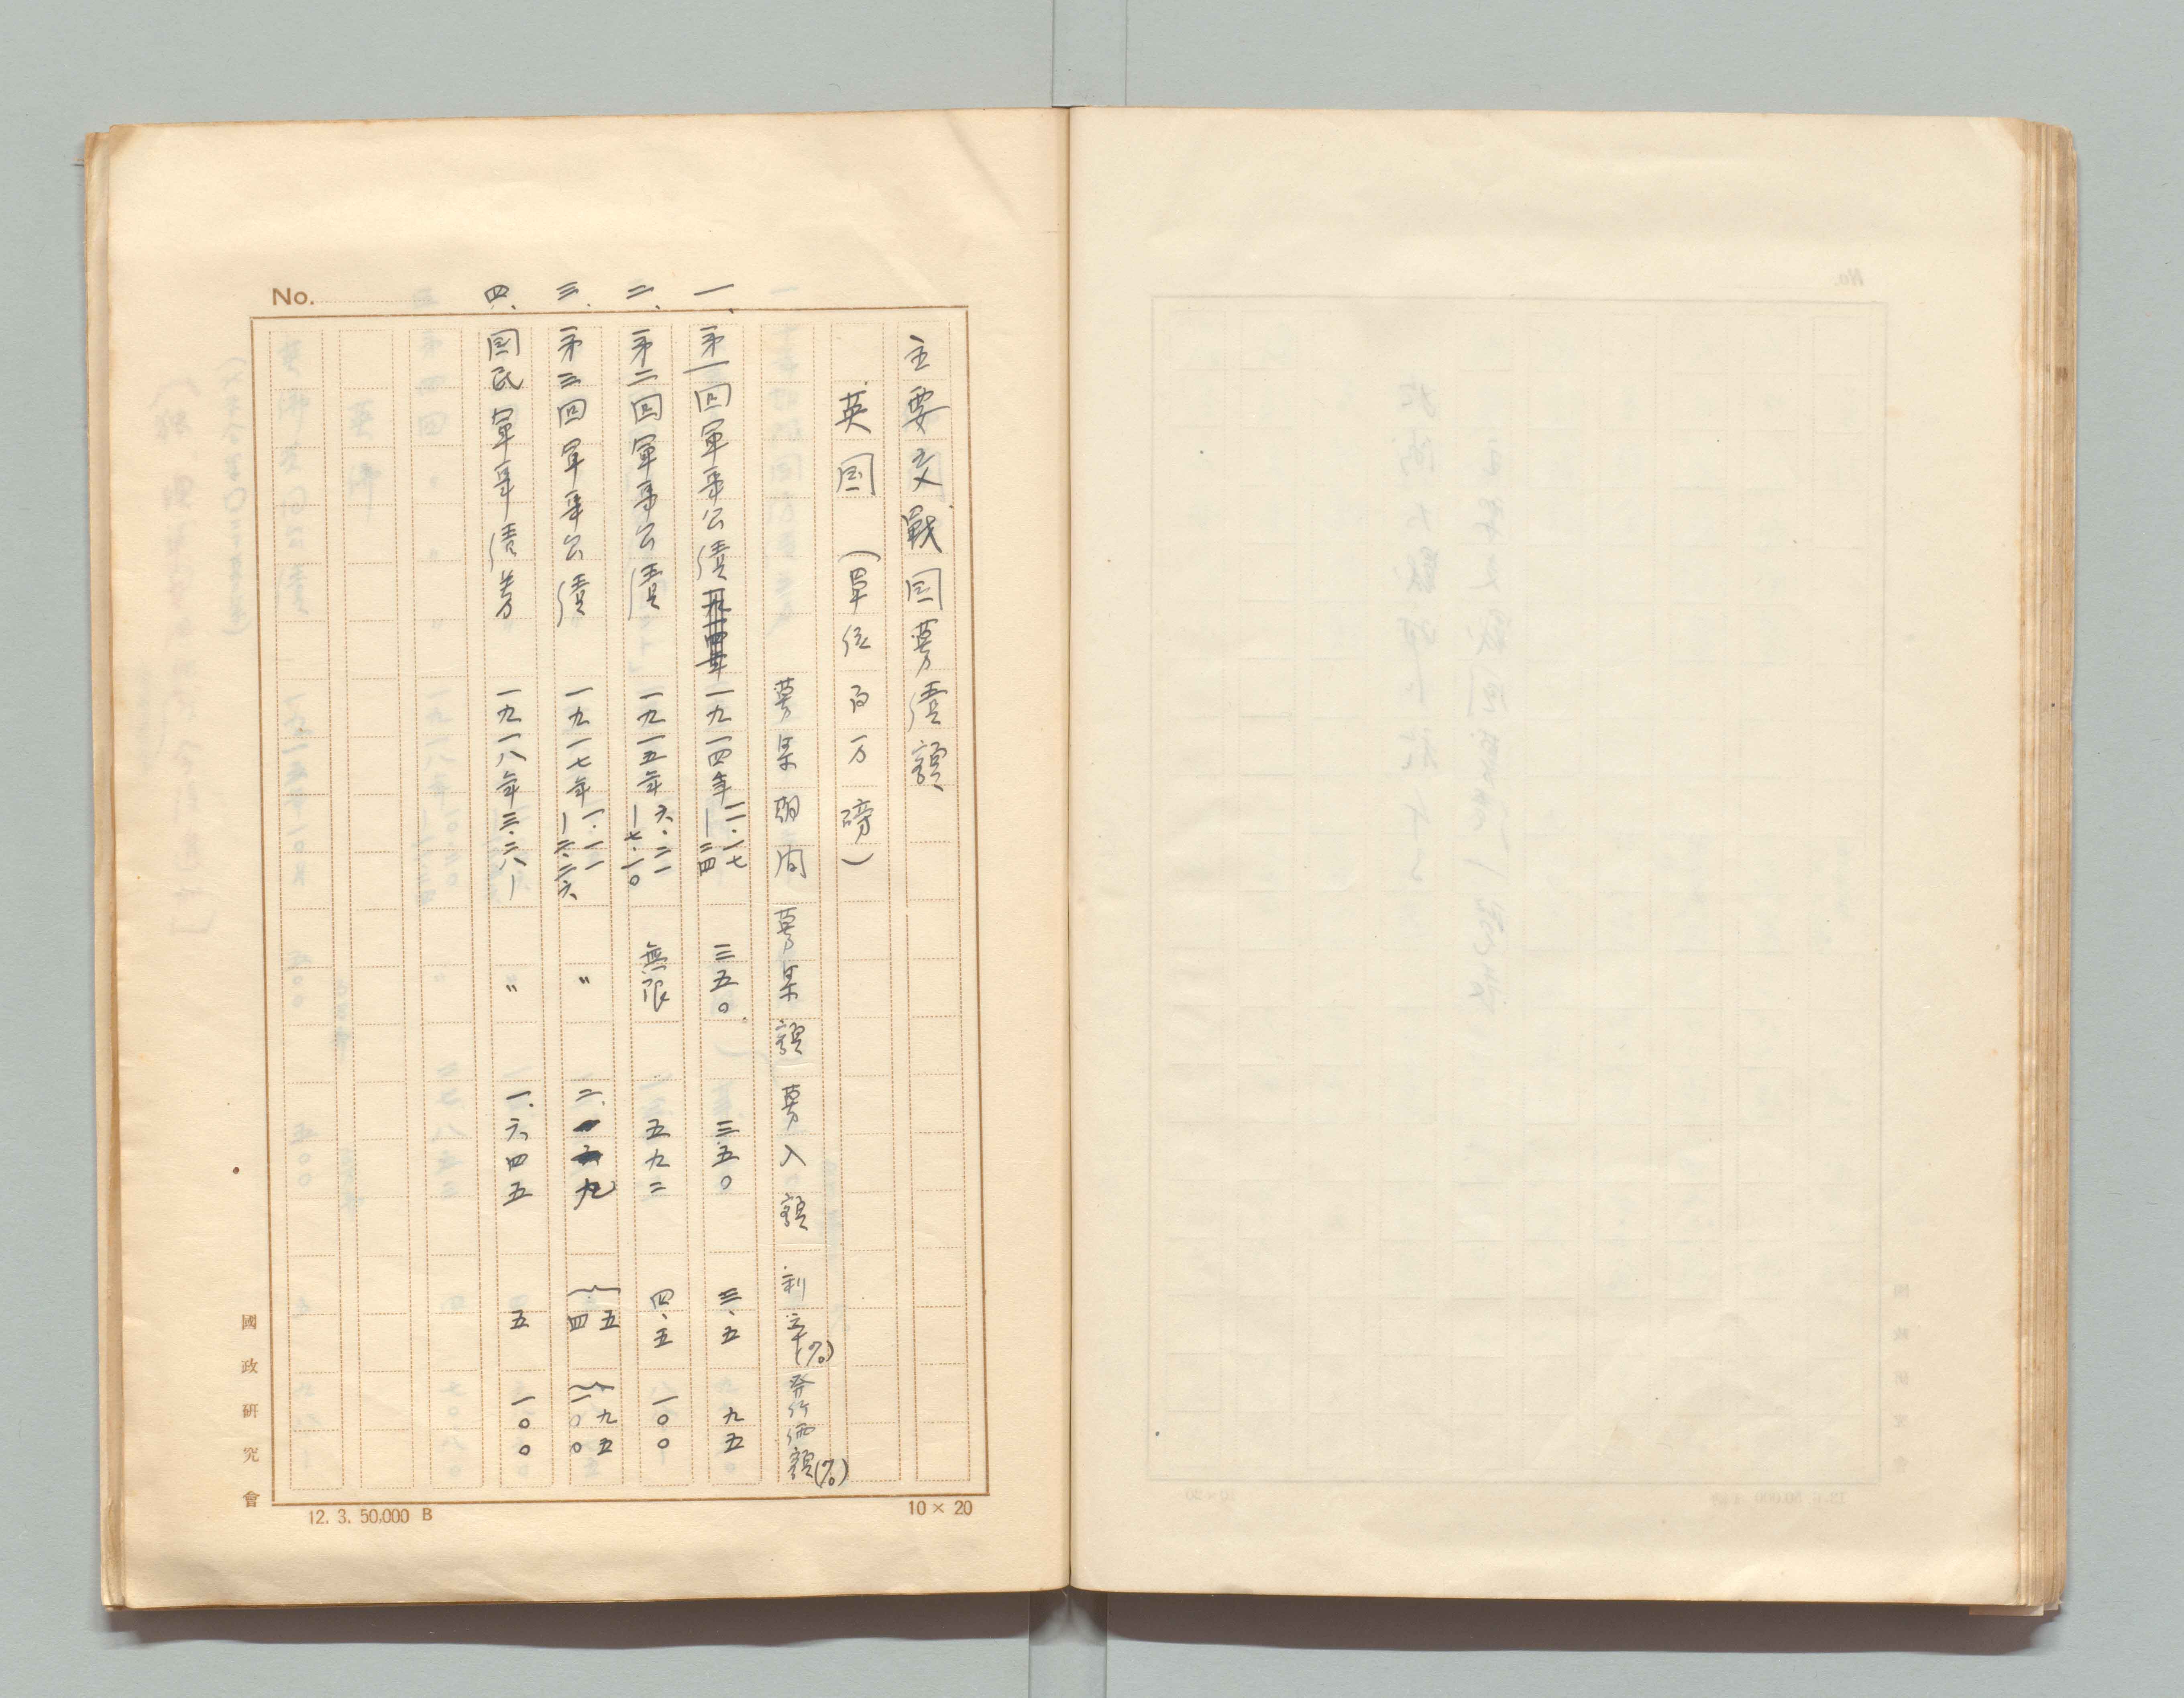 No.
主要交戦国募債額
英国 (単位百万磅)
募集期間 募集額 募入額 利率(%) 発行価額(%)
一、第一回軍事公債 一九一四年 一一・一七—二四 三五〇 三五〇 三、五 九五
二、第二回軍事公債 一九一五年 六・二一—七・一〇 無限 五九二 四、五 一〇〇
三、第三回軍事公債 一九一七年 一・一一—二・一六 〃 二、 九 {五 四 {九五 一〇〇
四、国民軍事債券 一九一八年三・二八— 〃 一、六四五 五 一〇〇
國政研究會
12. 3. 50,000 B
10 × 20